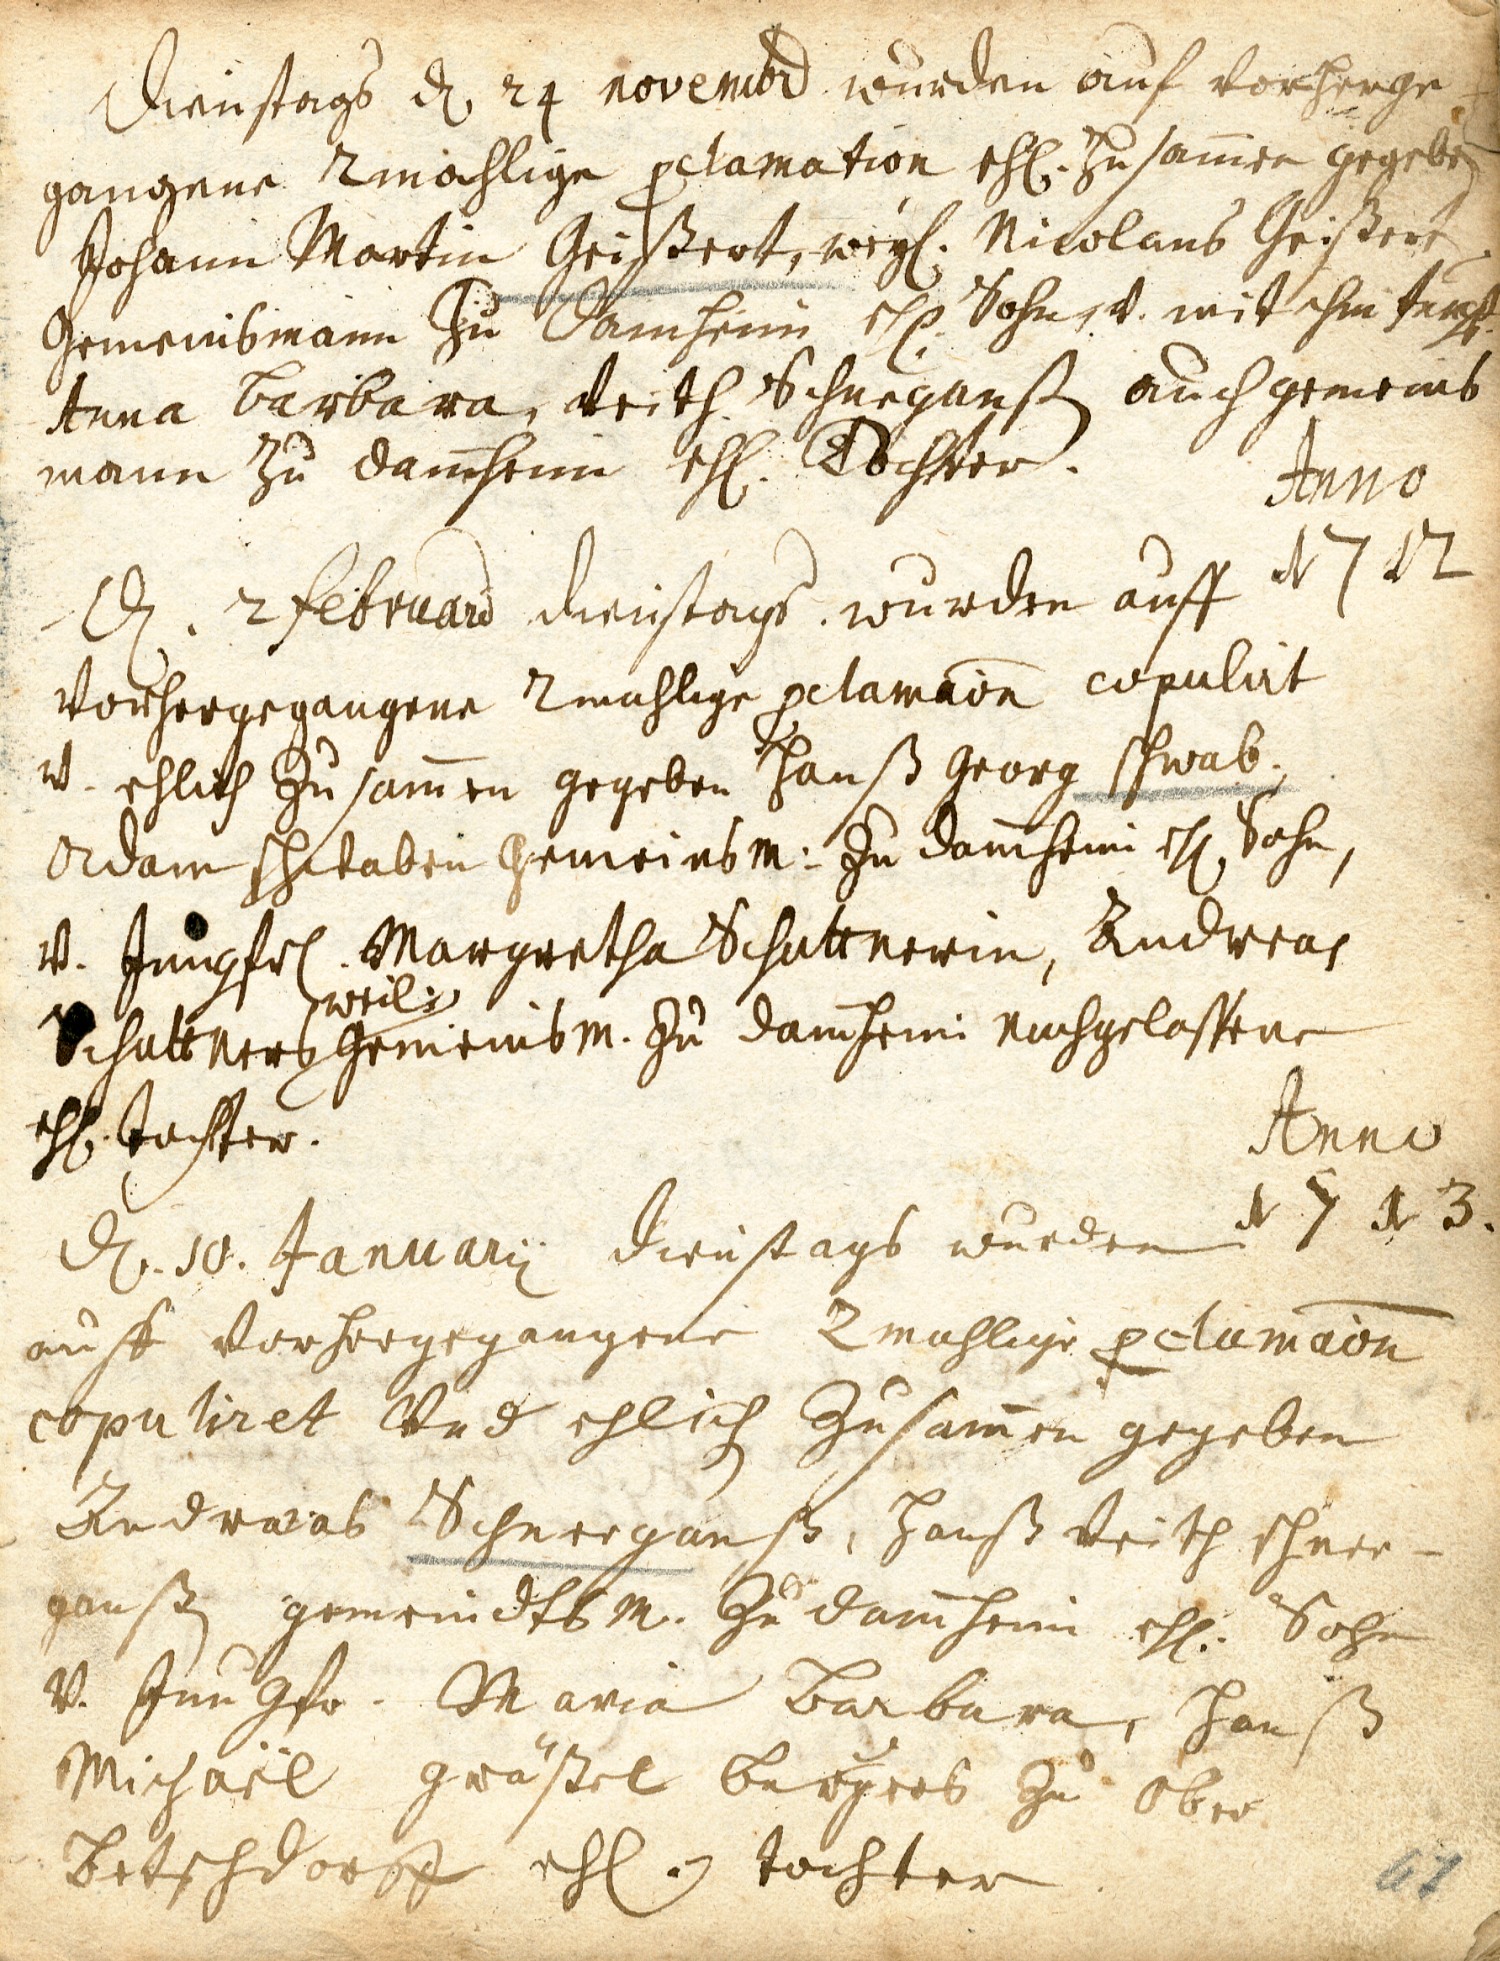 Dienstags d. 24 novembr wurden auf vorherge
gangene 2mahlige pclamation ehl. zusam̄en gegeben
Johann Martin Geißert, weyl. Nicolaus Geißert
Gemeinsmann Zu Damheim ehl. Sohn, v. mit ihm
Anna Barbara, Veith Schneganß auch gemeins
mann zu dam̄heim ehl. Tochter.
Anno
1712
D. 2 februarii dienstags wurden auff
vorhergegangene 2mahlige pclamāōn copulirt
v. ehlich zusam̄en gegeben Hanß Georg schwab,
Adam schwaben Gemeinsm: zu dam̄heim ehl. Sohn,
v. Jungfr. Margretha Schattnerin, Andreas
weil:
Schattners Gemeinsm. zu dam̄heim nachgelassene
ehl. tochter.
Anno
1713.
D. 10. Januarij dienstags wurden
auff vorhergegangene 2mahlige pclamāōn
copuliret Und ehlich Zusam̄en gegeben
Andreas Schneeganß, Hanß Veith schnee-
ganß gemeindtsm. Zu dam̄heim ehl. Sohn
v. Jungfr. Maria Barbara, Hanß
Michaël gräßel Burgers zu Ober
Betschdorff ehl. tochter
61